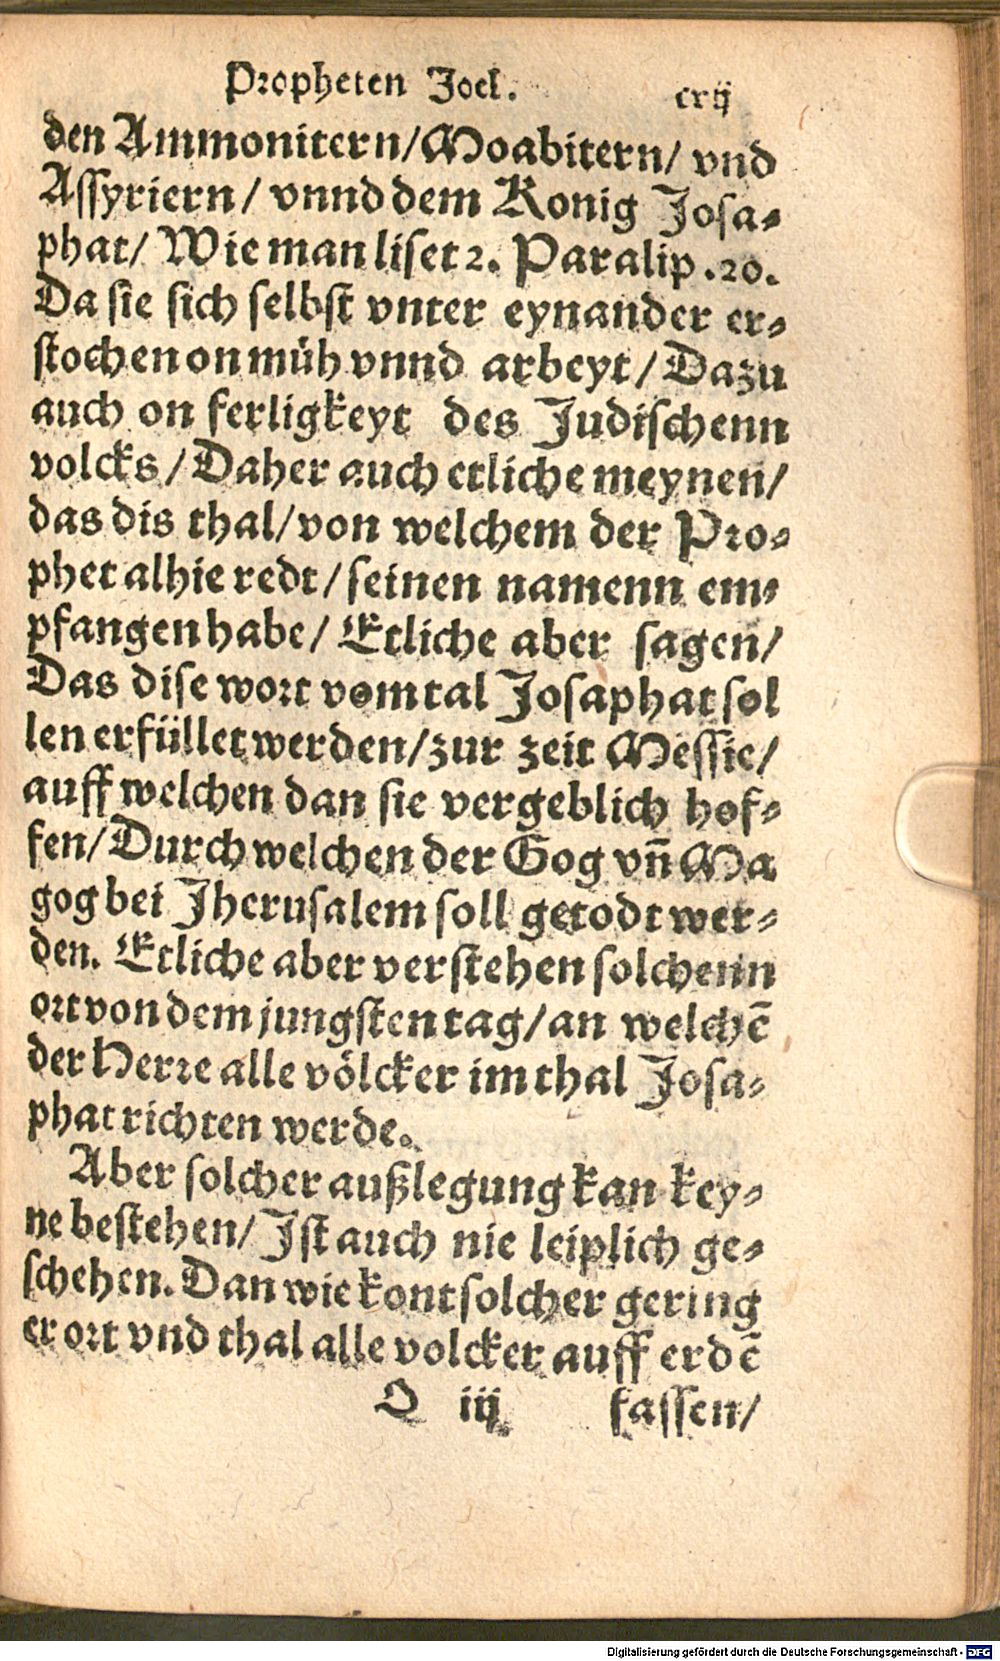 Propheten Joel. cxij
den Ammonitern/Moabitern/ vnd
Assyriern/ vnnd dem Konig Josa-
phat/ Wie man liset 2. Paralip. 20.
Da sie sich selbst vnter eynander er-
stochen on müh vnnd arbeyt/ Dazu
auch on ferligkeyt des Judischenn
volcks/ Daher auch etliche meynen/
das dis thal/ von welchem der Pro-
phet alhie redt/ seinen namenn em-
pfangen habe/ Etliche aber sagen/
Das dise wort vom tal Josaphat sol
len erfüllet werden/ zur zeit Messie/
auff welchen dan sie vergeblich hof-
fen/ Durch welchen der Gog vn̄ Ma
gog bei Jherusalem soll getodt wer-
den. Etliche aber verstehen solchenn
ort von dem jungsten tag/ an welchē
der Herre alle völcker im thal Josa-
phat richten werde.
Aber solcher außlegung kan key-
ne bestehen/ Jst auch nie leiplich ge-
schehen. Dan wie kont solcher gering
er ort vnd thal alle volcker auff erdē
O iij fassen/
Digitalisierung gefördert durch die Deutsche Forschungsgemeinschaft - DFG